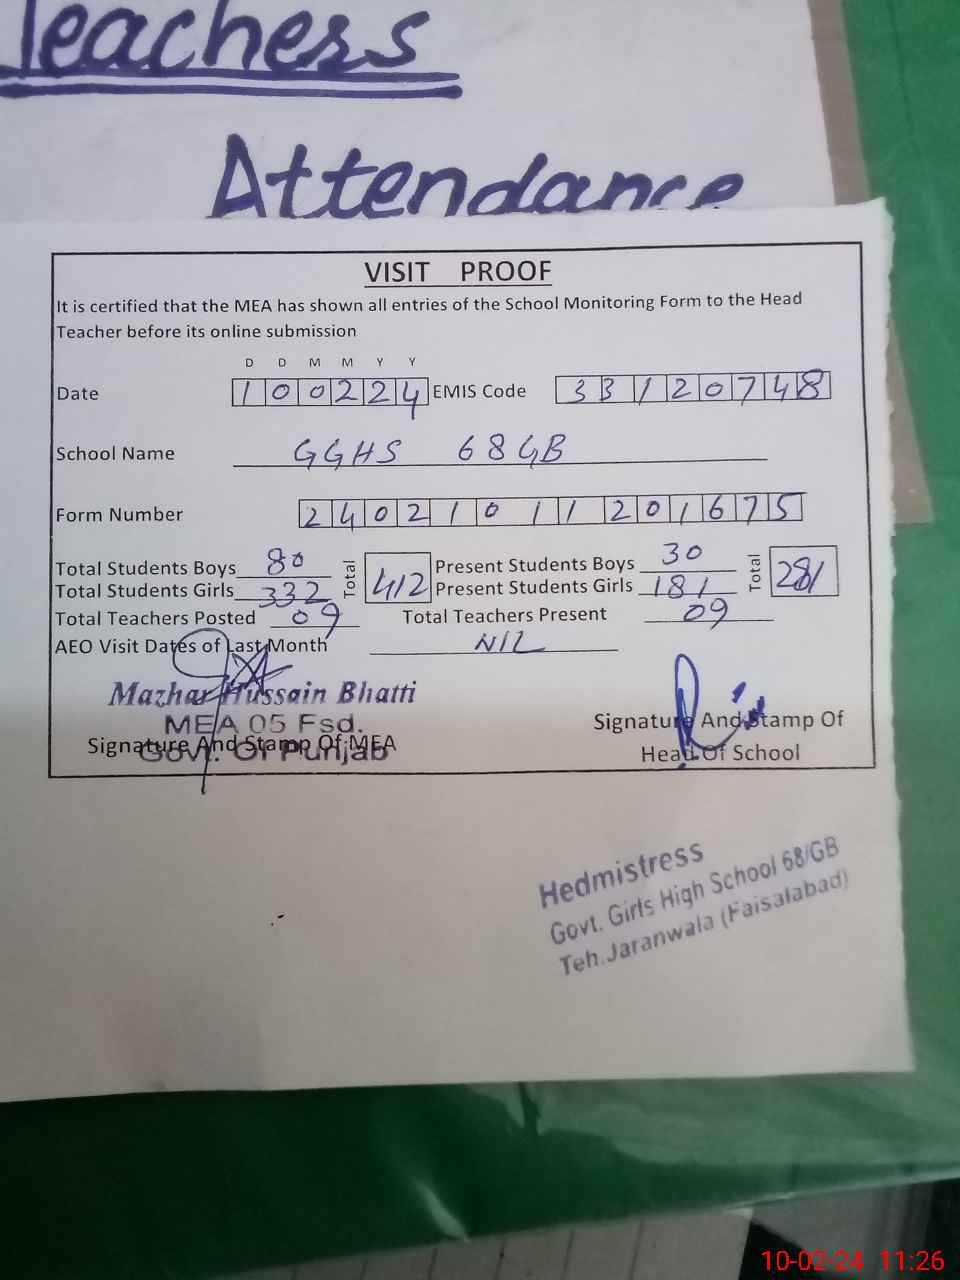 Teachers
Attendance
VISIT PROOF
It is certified that the MEA has shown all entries of the School Monitoring Form to the Head
Teacher before its online submission
D D M M Y Y
Date 100224 EMIS Code 33120748
School Name GGHS 68 GB
Form Number 24021011201675
Total Students Boys 80 Total 412 Present Students Boys 30 Total
Total Students Girls 332 Present Students Girls 181
Total Teachers Posted 09 Total Teachers Present 09
AEO Visit Dates of Last Month NIL
Mazhar Hussain Bhatti
MEA 05 Fsd.
Govt. Of Punjab
Signature And Stamp Of MEA
Signature And Stamp Of
Head Of School
Hedmistress
Govt. Girls High School 68/GB
Teh.Jaranwala (Faisalabad)
10-02-24 11:26